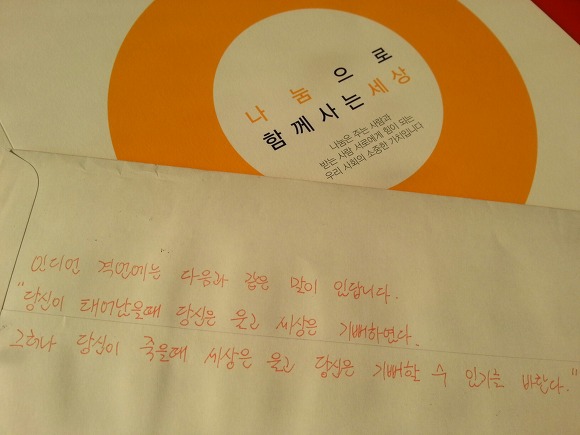 나눔으로
함께사는세상
나눔은 주는 사람과
받는 사람 서로에게 힘이 되는
우리 사회의 소중한 가치입니다
인디언 격언에는 다음과 같은 말이 있답니다.
"당신이 태어났을때 당신은 울고 세상은 기뻐하였다.
그러나 당신이 죽을때 세상은 울고 당신은 기뻐할 수 있기를 바란다."